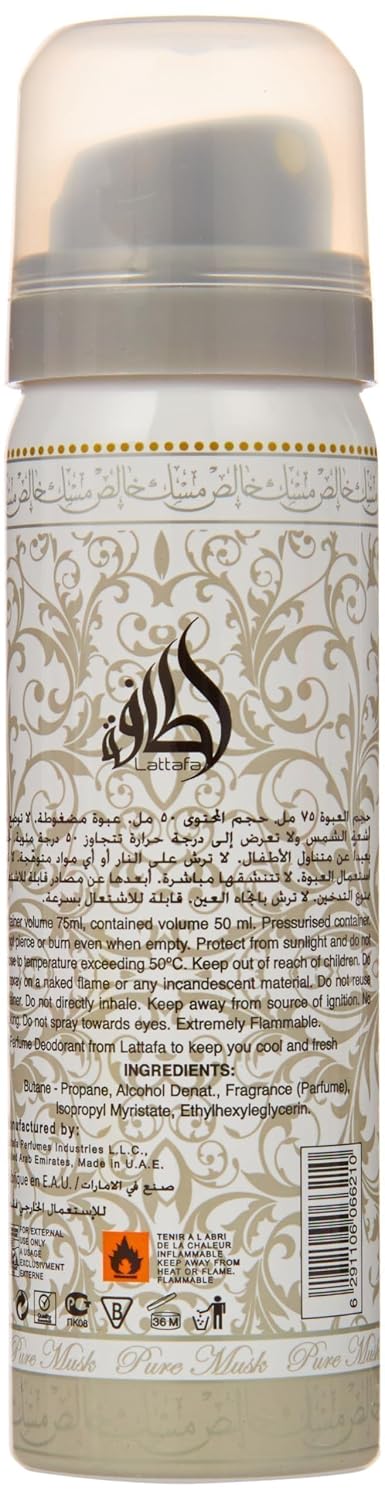 خالص مسك خالص مسك خالص
لطافة
Lattafa
حجم العبوة ٧٥ مل. حجم المحتوى ٥٠ مل. عبوة مضغوطة. لا
أشعة الشمس ولا تعرض إلى درجة حرارة تتجاوز ٥٠ درجة مئوية.
بعيداً عن متناول الأطفال. لا ترش على النار أو أي مواد متوهجة. لا
استعمال العبوة. لا تتنشقها مباشرة. أبعدها عن مصادر قابلة
ممنوع التدخين. لا ترش باتجاه العين. قابلة للاشتعال بسرعة.
volume 75ml, contained volume 50 ml. Pressurised container.
pierce or burn even when empty. Protect from sunlight and do not
to temperature exceeding 50ºC. Keep out of reach of children. Do
spray on a naked flame or any incandescent material. Do not reuse
Do not directly inhale. Keep away from source of ignition. No
Do not spray towards eyes. Extremely Flammable.
Deodorant from Lattafa to keep you cool and fresh
INGREDIENTS:
Butane - Propane, Alcohol Denat., Fragrance (Parfume),
Isopropyl Myristate, Ethylhexyleglycerin.
by:
Perfumes Industries L.L.C.,
Arab Emirates, Made in U.A.E.
en E.A.U./ صنع في الامارات
للإستعمال الخارجي
FOR EXTERNAL
USE ONLY
A USAGE
EXCLUSIVMENT
EXTERNE
TENIR A L ABRI
DE LA CHALEUR
INFLAMMABLE
KEEP AWAY FROM
HEAT OR FLAME.
FLAMMABLE
6 291106 066210
ПК08
B
36 M
Pure Musk Pure Musk Pure
خالص مسك خالص مسك خالص مسك